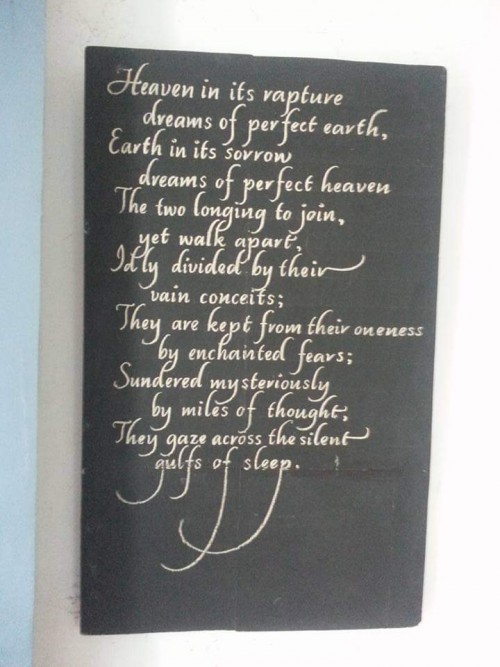 Heaven in its rapture
dreams of perfect earth,
Earth in its sorrow
dreams of perfect heaven
The two longing to join,
yet walk apart,
Idly divided by their
vain conceits;
They are kept from their oneness
by enchanted fears;
Sundered mysteriously
by miles of thought;
They gaze across the silent
gulfs of sleep.